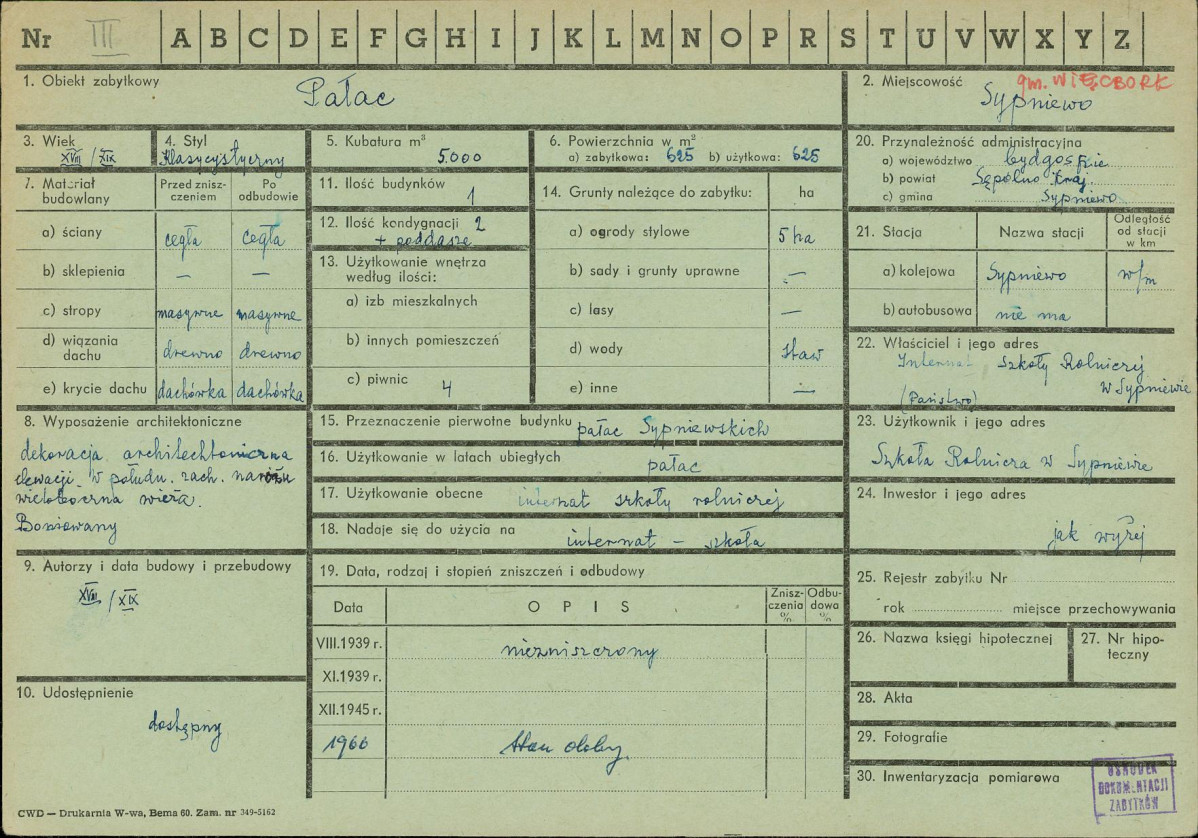 Nr III A B C D E F G H I J K L M N O P R S T U V W X Y Z
1. Obiekt zabytkowy
Pałac
2. Miejscowość
gm. WIĘCBORK
Sypniewo
3. Wiek
XVIII/XIX
4. Styl
Klasycystyczny
5. Kubatura m³
5.000
6. Powierzchnia w m²
a) zabytkowa: 625 b) użytkowa: 625
7. Materiał budowlany
Przed zniszczeniem
Po odbudowie
a) ściany cegła cegła
b) sklepienia — —
c) stropy masywne masywne
d) wiązania dachu drewno drewno
e) krycie dachu dachówka dachówka
8. Wyposażenie architektoniczne
dekoracja architechtoniczna
elewacji. W połudn. zach. narożu
wieloboczna wieża.
Boniowany
9. Autorzy i data budowy i przebudowy
XVIII/XIX
10. Udostępnienie
dostępny
11. Ilość budynków
1
12. Ilość kondygnacji 2
+ poddasze
13. Użytkowanie wnętrza
według ilości:
a) izb mieszkalnych
b) innych pomieszczeń
c) piwnic 4
14. Grunty należące do zabytku: ha
a) ogrody stylowe 5 ha
b) sady i grunty uprawne —
c) lasy —
d) wody staw
e) inne —
15. Przeznaczenie pierwotne budynku pałac Sypniewskich
16. Użytkowanie w latach ubiegłych pałac
17. Użytkowanie obecne internat szkoły rolniczej
18. Nadaje się do użycia na internat — szkoła
19. Data, rodzaj i stopień zniszczeń i odbudowy
Data OPIS Zniszczenia % Odbudowa %
VIII.1939 r. niezniszczony
XI.1939 r.
XII.1945 r.
1966 Stan dobry
20. Przynależność administracyjna
a) województwo bydgoskie
b) powiat Sępólno Kraj.
c) gmina Sypniewo
21. Stacja Nazwa stacji Odległość od stacji w km
a) kolejowa Sypniewo w/m
b) autobusowa nie ma
22. Właściciel i jego adres
Internat Szkoły Rolniczej
w Sypniewie
(Państwo)
23. Użytkownik i jego adres
Szkoła Rolnicza w Sypniewie
24. Inwestor i jego adres
jak wyżej
25. Rejestr zabytku Nr
rok miejsce przechowywania
26. Nazwa księgi hipotecznej
27. Nr hipoteczny
28. Akta
29. Fotografie
30. Inwentaryzacja pomiarowa
OŚRODEK
DOKUMENTACJI
ZABYTKÓW
CWD — Drukarnia W-wa, Bema 60. Zam. nr 349-5162